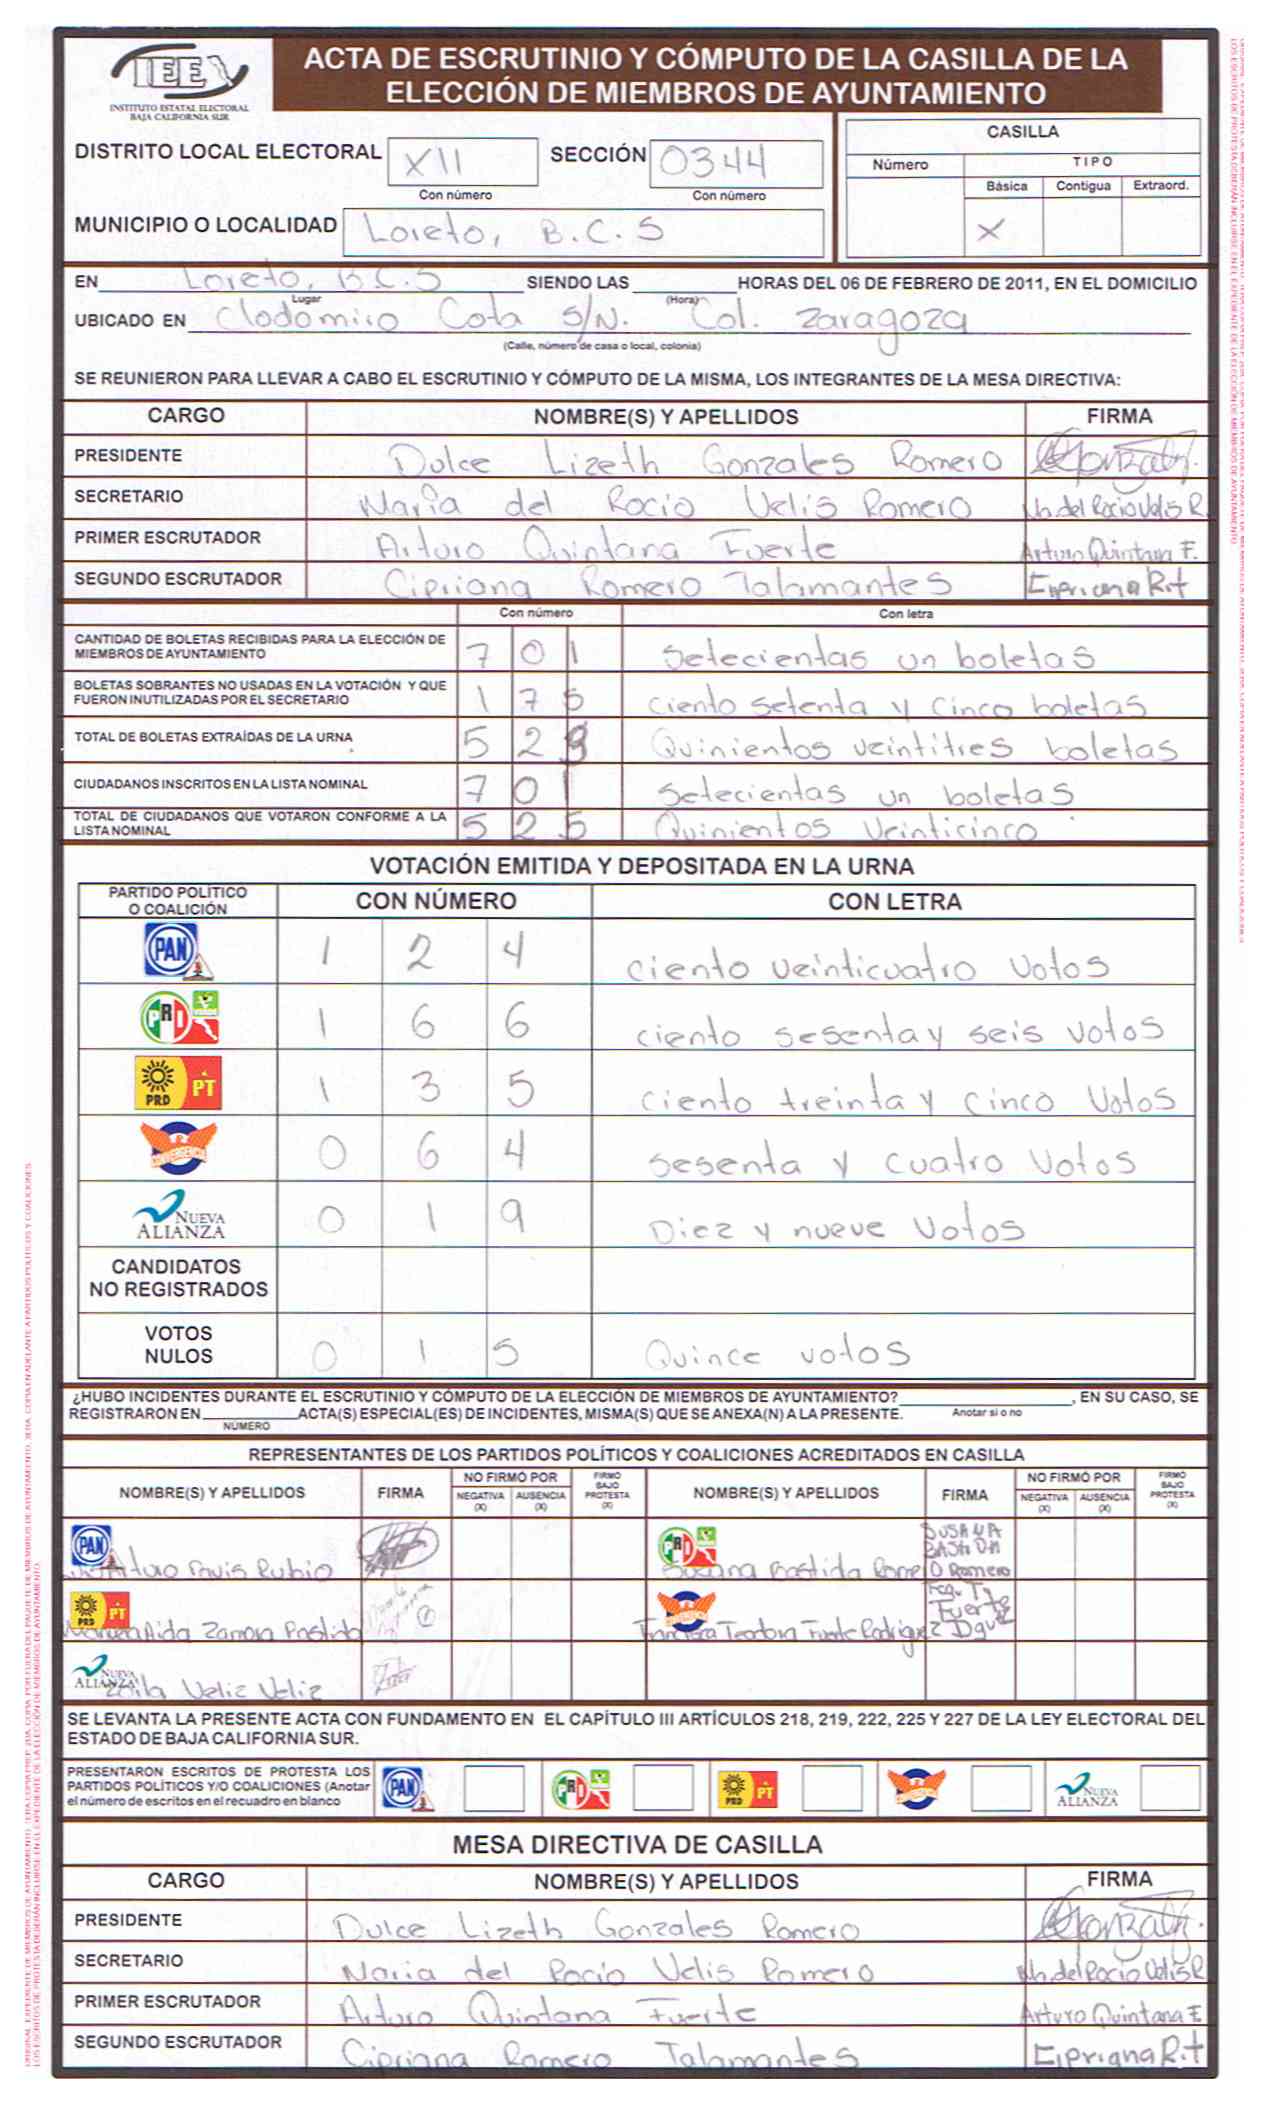 ACTA DE ESCRUTINIO Y CÓMPUTO DE LA CASILLA DE LA
ELECCIÓN DE MIEMBROS DE AYUNTAMIENTO
INSTITUTO ESTATAL ELECTORAL
BAJA CALIFORNIA SUR
DISTRITO LOCAL ELECTORAL XII SECCIÓN 0344
Con número Con número
MUNICIPIO O LOCALIDAD Loreto, B.C.S
CASILLA
Número TIPO
Básica Contigua Extraord.
X
EN Loreto, B.C.S SIENDO LAS HORAS DEL 06 DE FEBRERO DE 2011, EN EL DOMICILIO
Lugar (Hora)
UBICADO EN Clodomiro Cota S/N. Col. Zaragoza
(Calle, número de casa o local, colonia)
SE REUNIERON PARA LLEVAR A CABO EL ESCRUTINIO Y CÓMPUTO DE LA MISMA, LOS INTEGRANTES DE LA MESA DIRECTIVA:
CARGO NOMBRE(S) Y APELLIDOS FIRMA
PRESIDENTE Dulce Lizeth Gonzales Romero
SECRETARIO Maria del Rocio Velis Romero Ma. del Rocio Velis R.
PRIMER ESCRUTADOR Arturo Quintana Fuerte Arturo Quintana F.
SEGUNDO ESCRUTADOR Cipriana Romero Talamantes Cipriana R.t
Con número Con letra
CANTIDAD DE BOLETAS RECIBIDAS PARA LA ELECCIÓN DE
MIEMBROS DE AYUNTAMIENTO 7 0 1 Setecientas un boletas
BOLETAS SOBRANTES NO USADAS EN LA VOTACIÓN Y QUE
FUERON INUTILIZADAS POR EL SECRETARIO 1 7 5 ciento setenta y cinco boletas
TOTAL DE BOLETAS EXTRAÍDAS DE LA URNA 5 2 3 Quinientos veintitres boletas
CIUDADANOS INSCRITOS EN LA LISTA NOMINAL 7 0 1 Setecientas un boletas
TOTAL DE CIUDADANOS QUE VOTARON CONFORME A LA
LISTA NOMINAL 5 2 5 Quinientos veinticinco
VOTACIÓN EMITIDA Y DEPOSITADA EN LA URNA
PARTIDO POLÍTICO
O COALICIÓN CON NÚMERO CON LETRA
PAN 1 2 4 ciento veinticuatro votos
PRI VERDE 1 6 6 ciento sesenta y seis votos
PRD PT 1 3 5 ciento treinta y cinco votos
CONVERGENCIA 0 6 4 sesenta y cuatro votos
NUEVA ALIANZA 0 1 9 Diez y nueve votos
CANDIDATOS
NO REGISTRADOS
VOTOS
NULOS 0 1 5 Quince votos
¿HUBO INCIDENTES DURANTE EL ESCRUTINIO Y CÓMPUTO DE LA ELECCIÓN DE MIEMBROS DE AYUNTAMIENTO? , EN SU CASO, SE
REGISTRARON EN ACTA(S) ESPECIAL(ES) DE INCIDENTES, MISMA(S) QUE SE ANEXA(N) A LA PRESENTE. Anotar si o no
NÚMERO
REPRESENTANTES DE LOS PARTIDOS POLÍTICOS Y COALICIONES ACREDITADOS EN CASILLA
NOMBRE(S) Y APELLIDOS FIRMA NO FIRMÓ POR NEGATIVA (X) AUSENCIA (X) FIRMÓ BAJO PROTESTA (X) NOMBRE(S) Y APELLIDOS FIRMA NO FIRMÓ POR NEGATIVA (X) AUSENCIA (X) FIRMÓ BAJO PROTESTA (X)
PAN Arturo Rubio PRI Susana Bastida Rome SUSANA BASTIDA Romero
PRD PT Aida Zamora Bastida CONVERGENCIA Teodora Fuerte Rodriguez Fuerte
NUEVA ALIANZA Zoila Veliz Veliz
SE LEVANTA LA PRESENTE ACTA CON FUNDAMENTO EN EL CAPÍTULO III ARTÍCULOS 218, 219, 222, 225 Y 227 DE LA LEY ELECTORAL DEL
ESTADO DE BAJA CALIFORNIA SUR.
PRESENTARON ESCRITOS DE PROTESTA LOS
PARTIDOS POLÍTICOS Y/O COALICIONES (Anotar
el número de escritos en el recuadro en blanco
PAN PRI PRD PT CONVERGENCIA NUEVA ALIANZA
MESA DIRECTIVA DE CASILLA
CARGO NOMBRE(S) Y APELLIDOS FIRMA
PRESIDENTE Dulce Lizeth Gonzales Romero
SECRETARIO Maria del Rocio Velis Romero Ma. del Rocio Velis R
PRIMER ESCRUTADOR Arturo Quintana Fuerte Arturo Quintana F
SEGUNDO ESCRUTADOR Cipriana Romero Talamantes Cipriana R.t